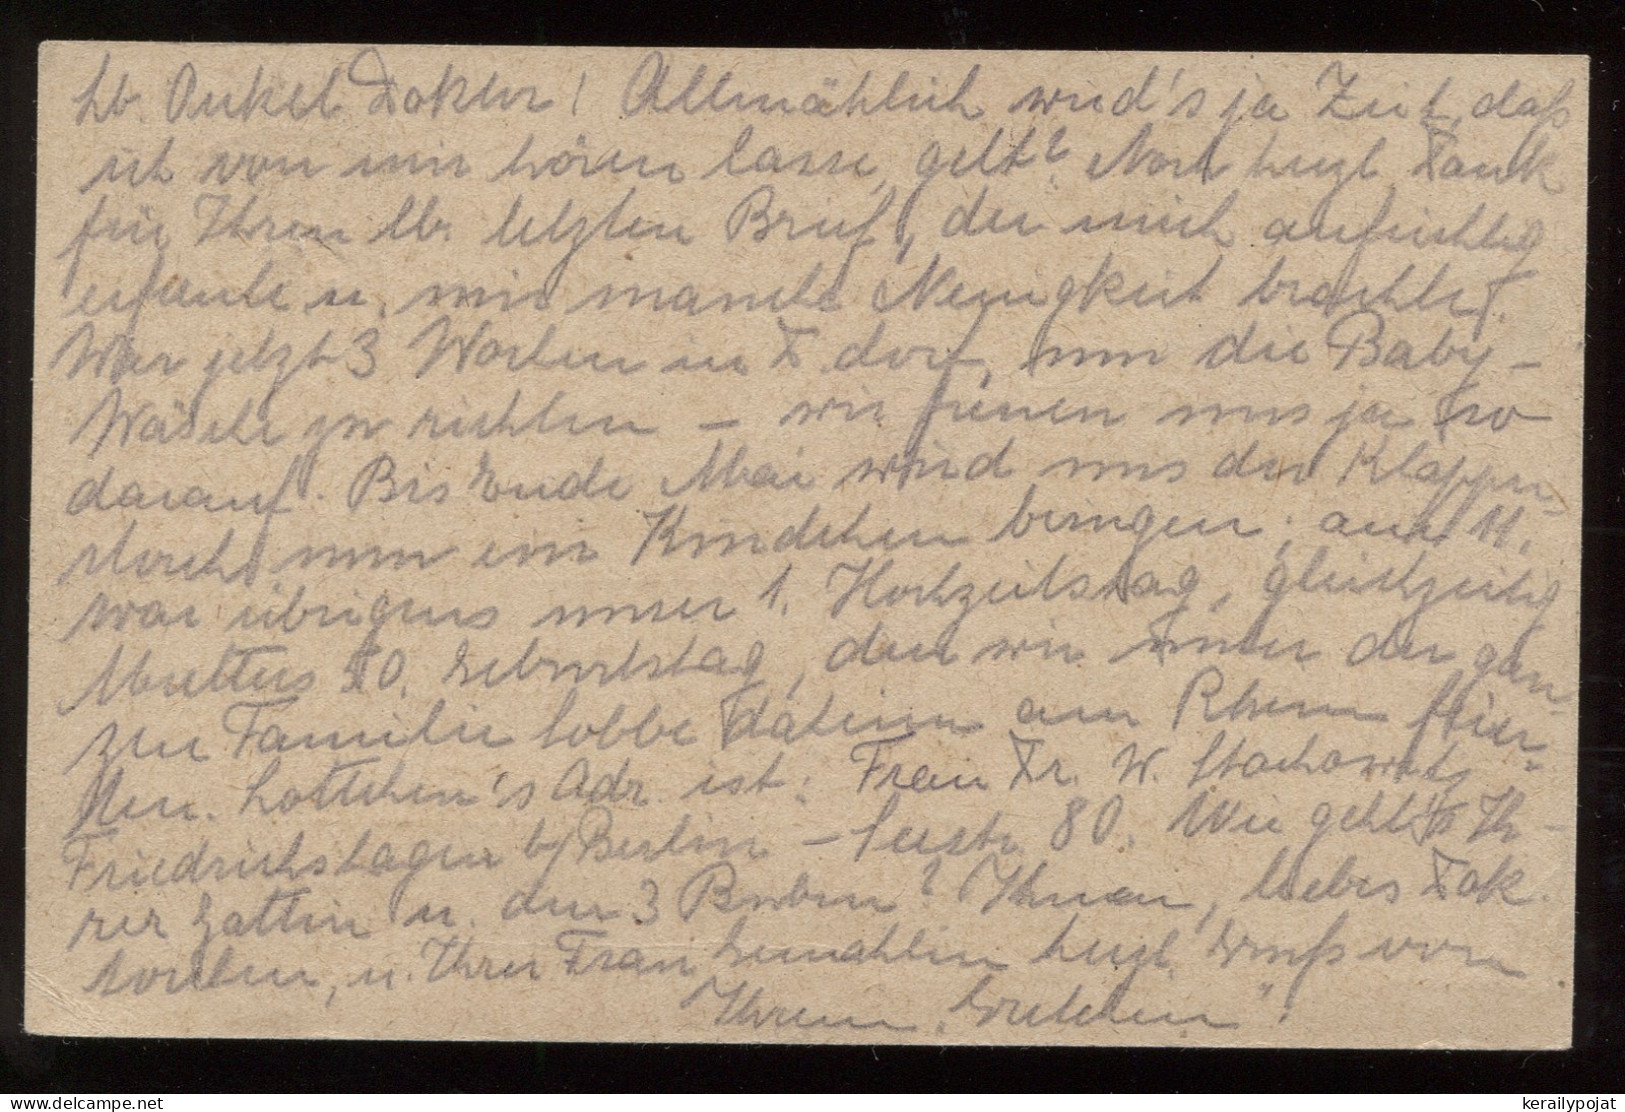 Lb. Onkel Doktor! Allmählich wird's ja Zeit, daß
ich von mir hören lasse, gelt? Noch herzl. Dank
für Ihren lb. letzten Brief, der mich aufrichtig
erfreute u. mir manche Neuigkeit brachte.
War jetzt 3 Wochen in D.dorf, um die Baby-
Wäsche zu richten – wir freuen uns ja so
darauf. Bis Ende Mai wird uns der Klapper-
storch nun ein Kindchen bringen; am 11.
war übrigens unser 1. Hochzeitstag, gleichzeitig
Mutters 50. Geburtstag, den wir im der gan-
zen Familie am Rhein feier-
ten. Lottchen's Adr. ist: Frau Dr. W. Stachowitz
Friedrichshagen b/Berlin – Seestr. 80. Wie geht's Ih-
rer Gattin u. den 3 Buben? Ihnen, liebes Dok-
torchen, u. Ihrer Frau Gemahlin herzl. Gruß von
Ihrem „Gretchen"!
DELCAMPE.NET
kerailypojat